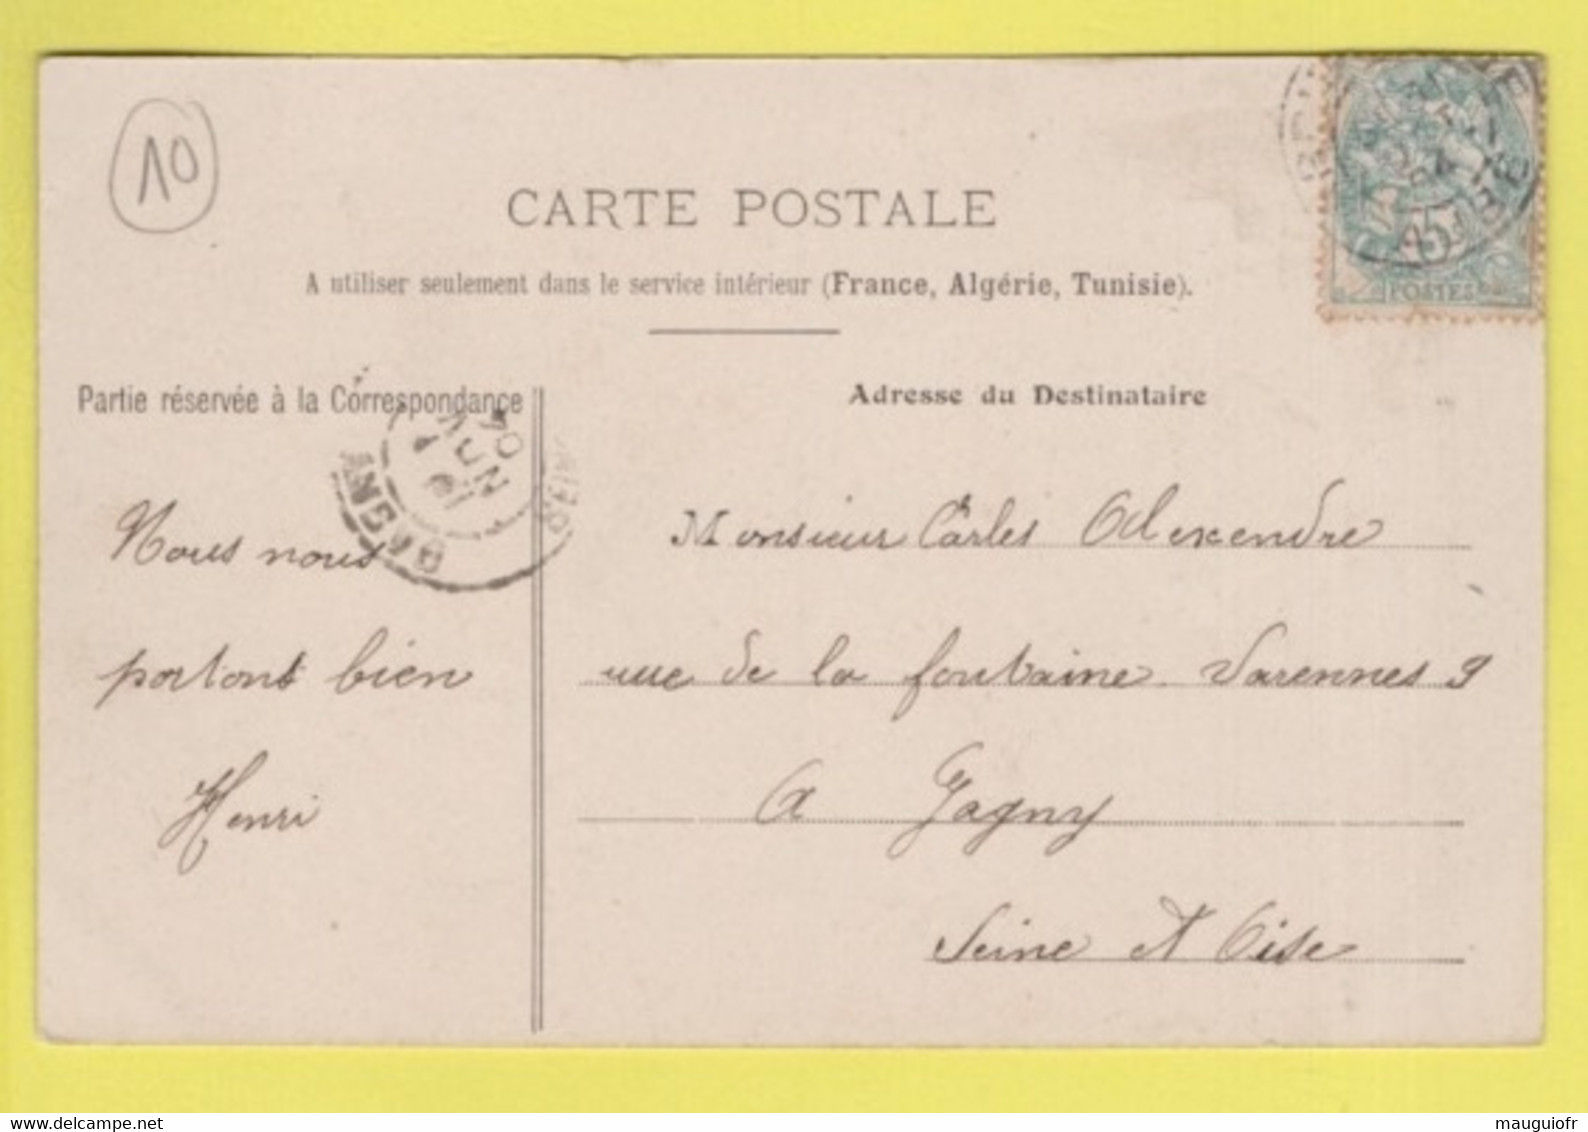 10
CARTE POSTALE
A utiliser seulement dans le service intérieur (France, Algérie, Tunisie).
POSTES
Partie réservée à la Correspondance
Adresse du Destinataire
JUIN
04
Nous nous
portons bien
Henri
Monsieur Carles Alexendre
rue de la fontaine Varennes 9
A Gagny
Seine et Oise
delcampe.net
mauguiofr